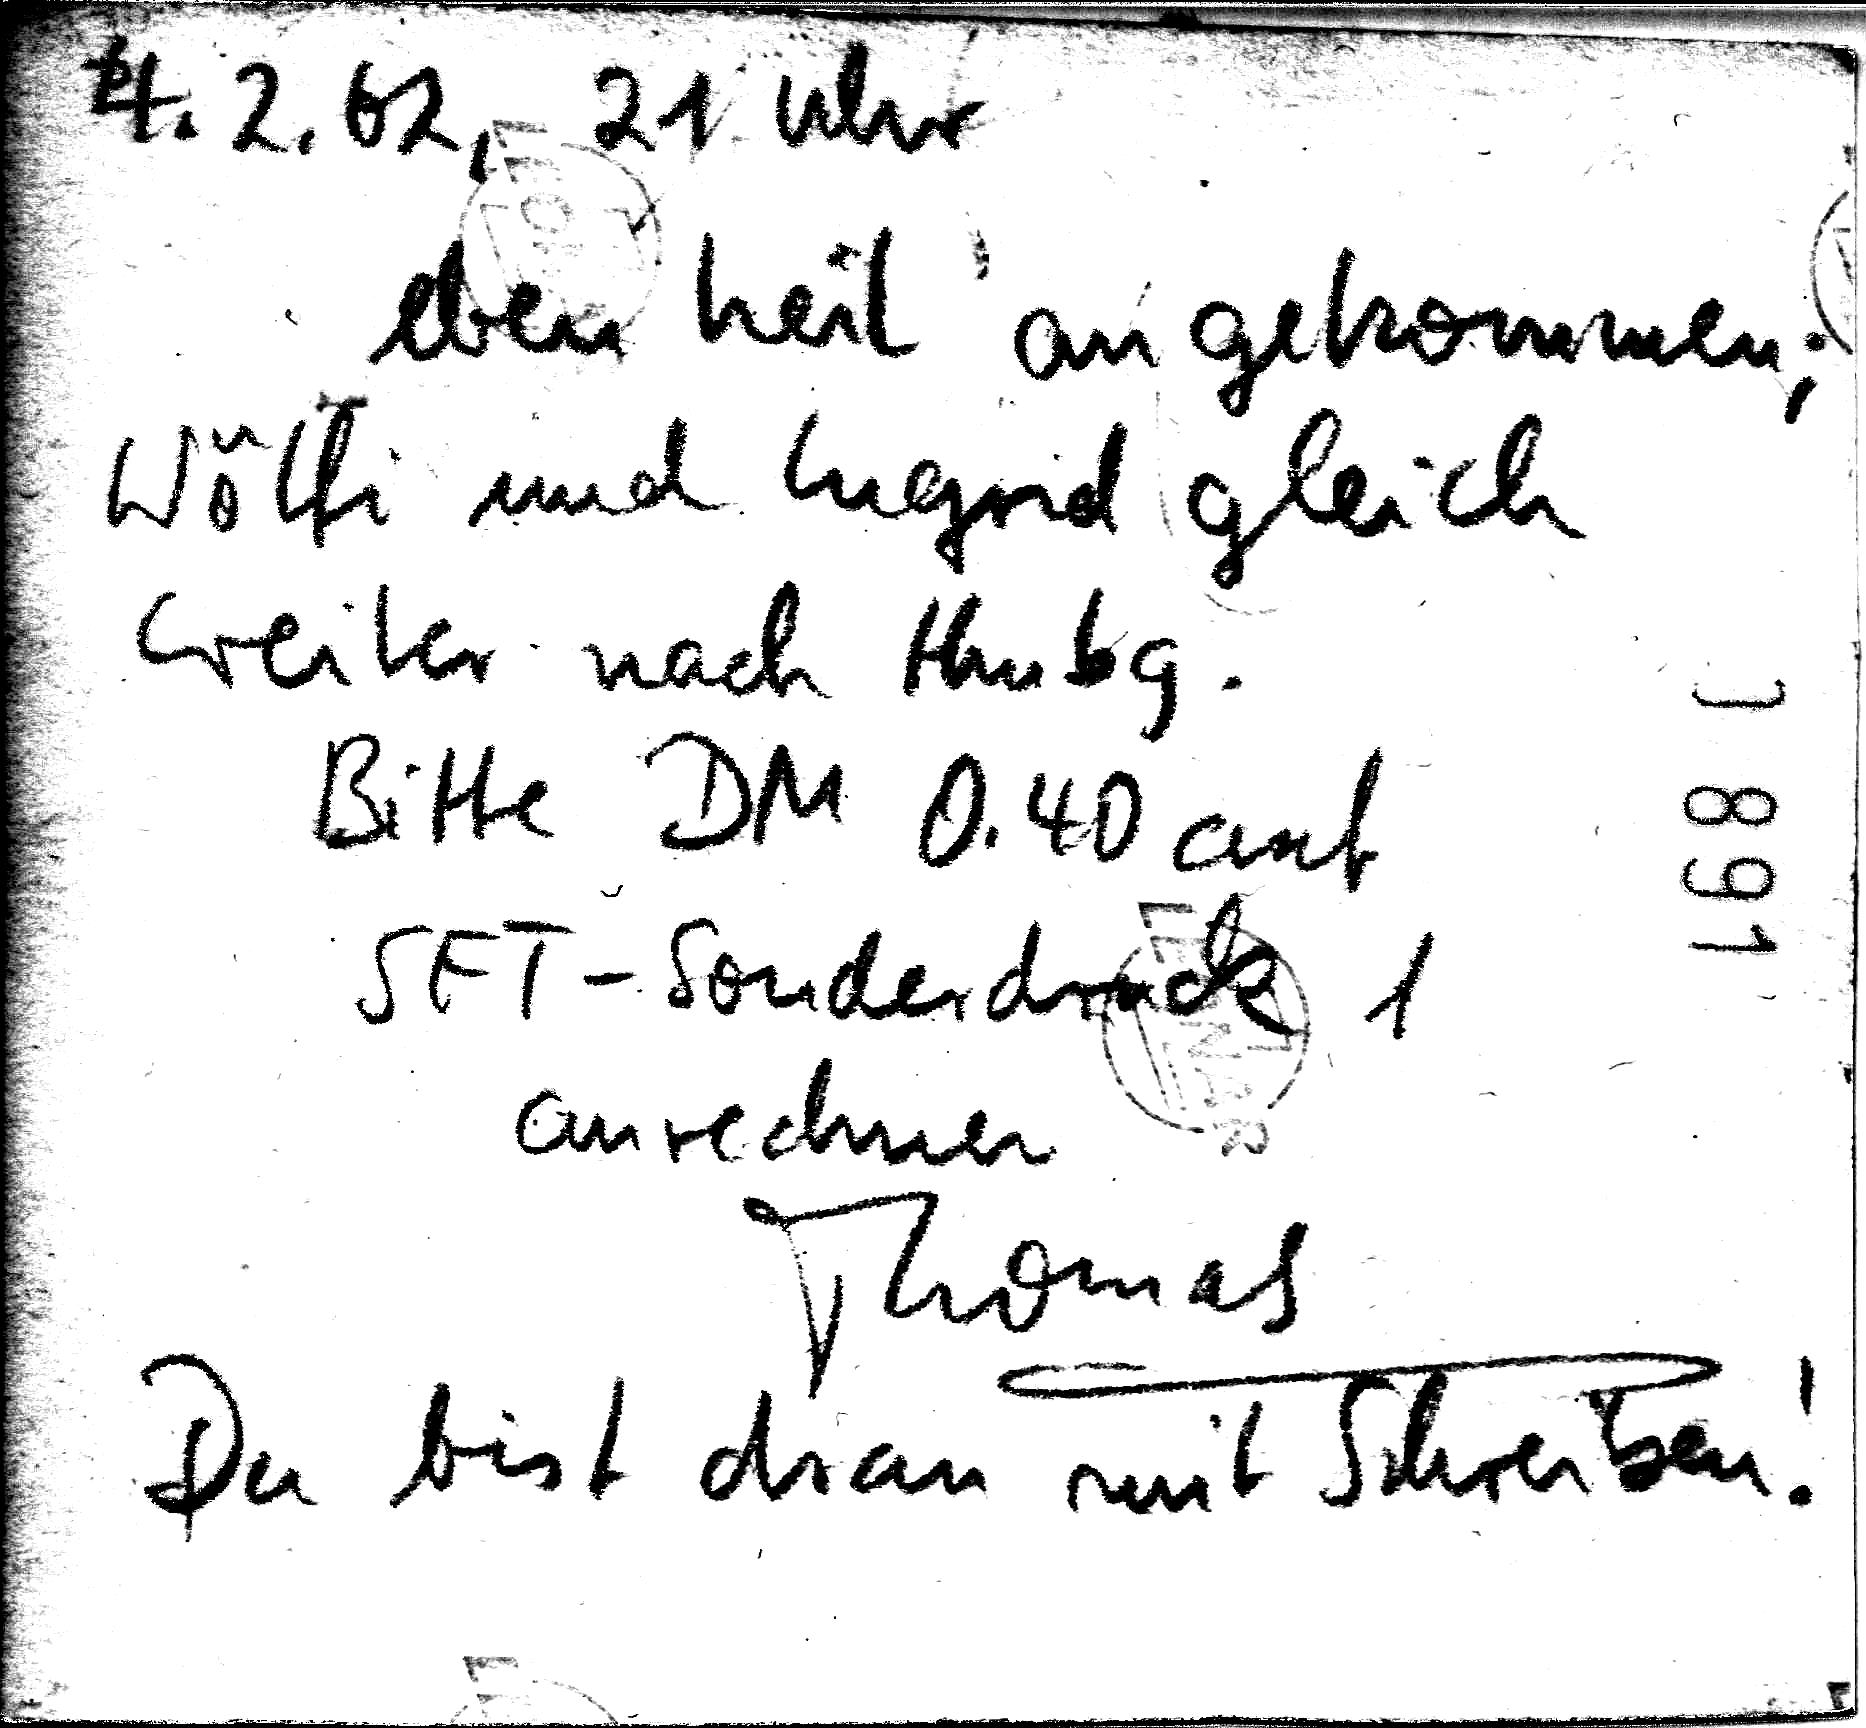 4. 2. 62, 21 Uhr
eben heil angekommen;
Wölfi und Ingrid gleich
weiter nach Hmbg.
Bitte DM 0.40 auf
SFT-Sonderdruck 1
anrechnen
Thomas
Du bist dran mit Schreiben!
J 891